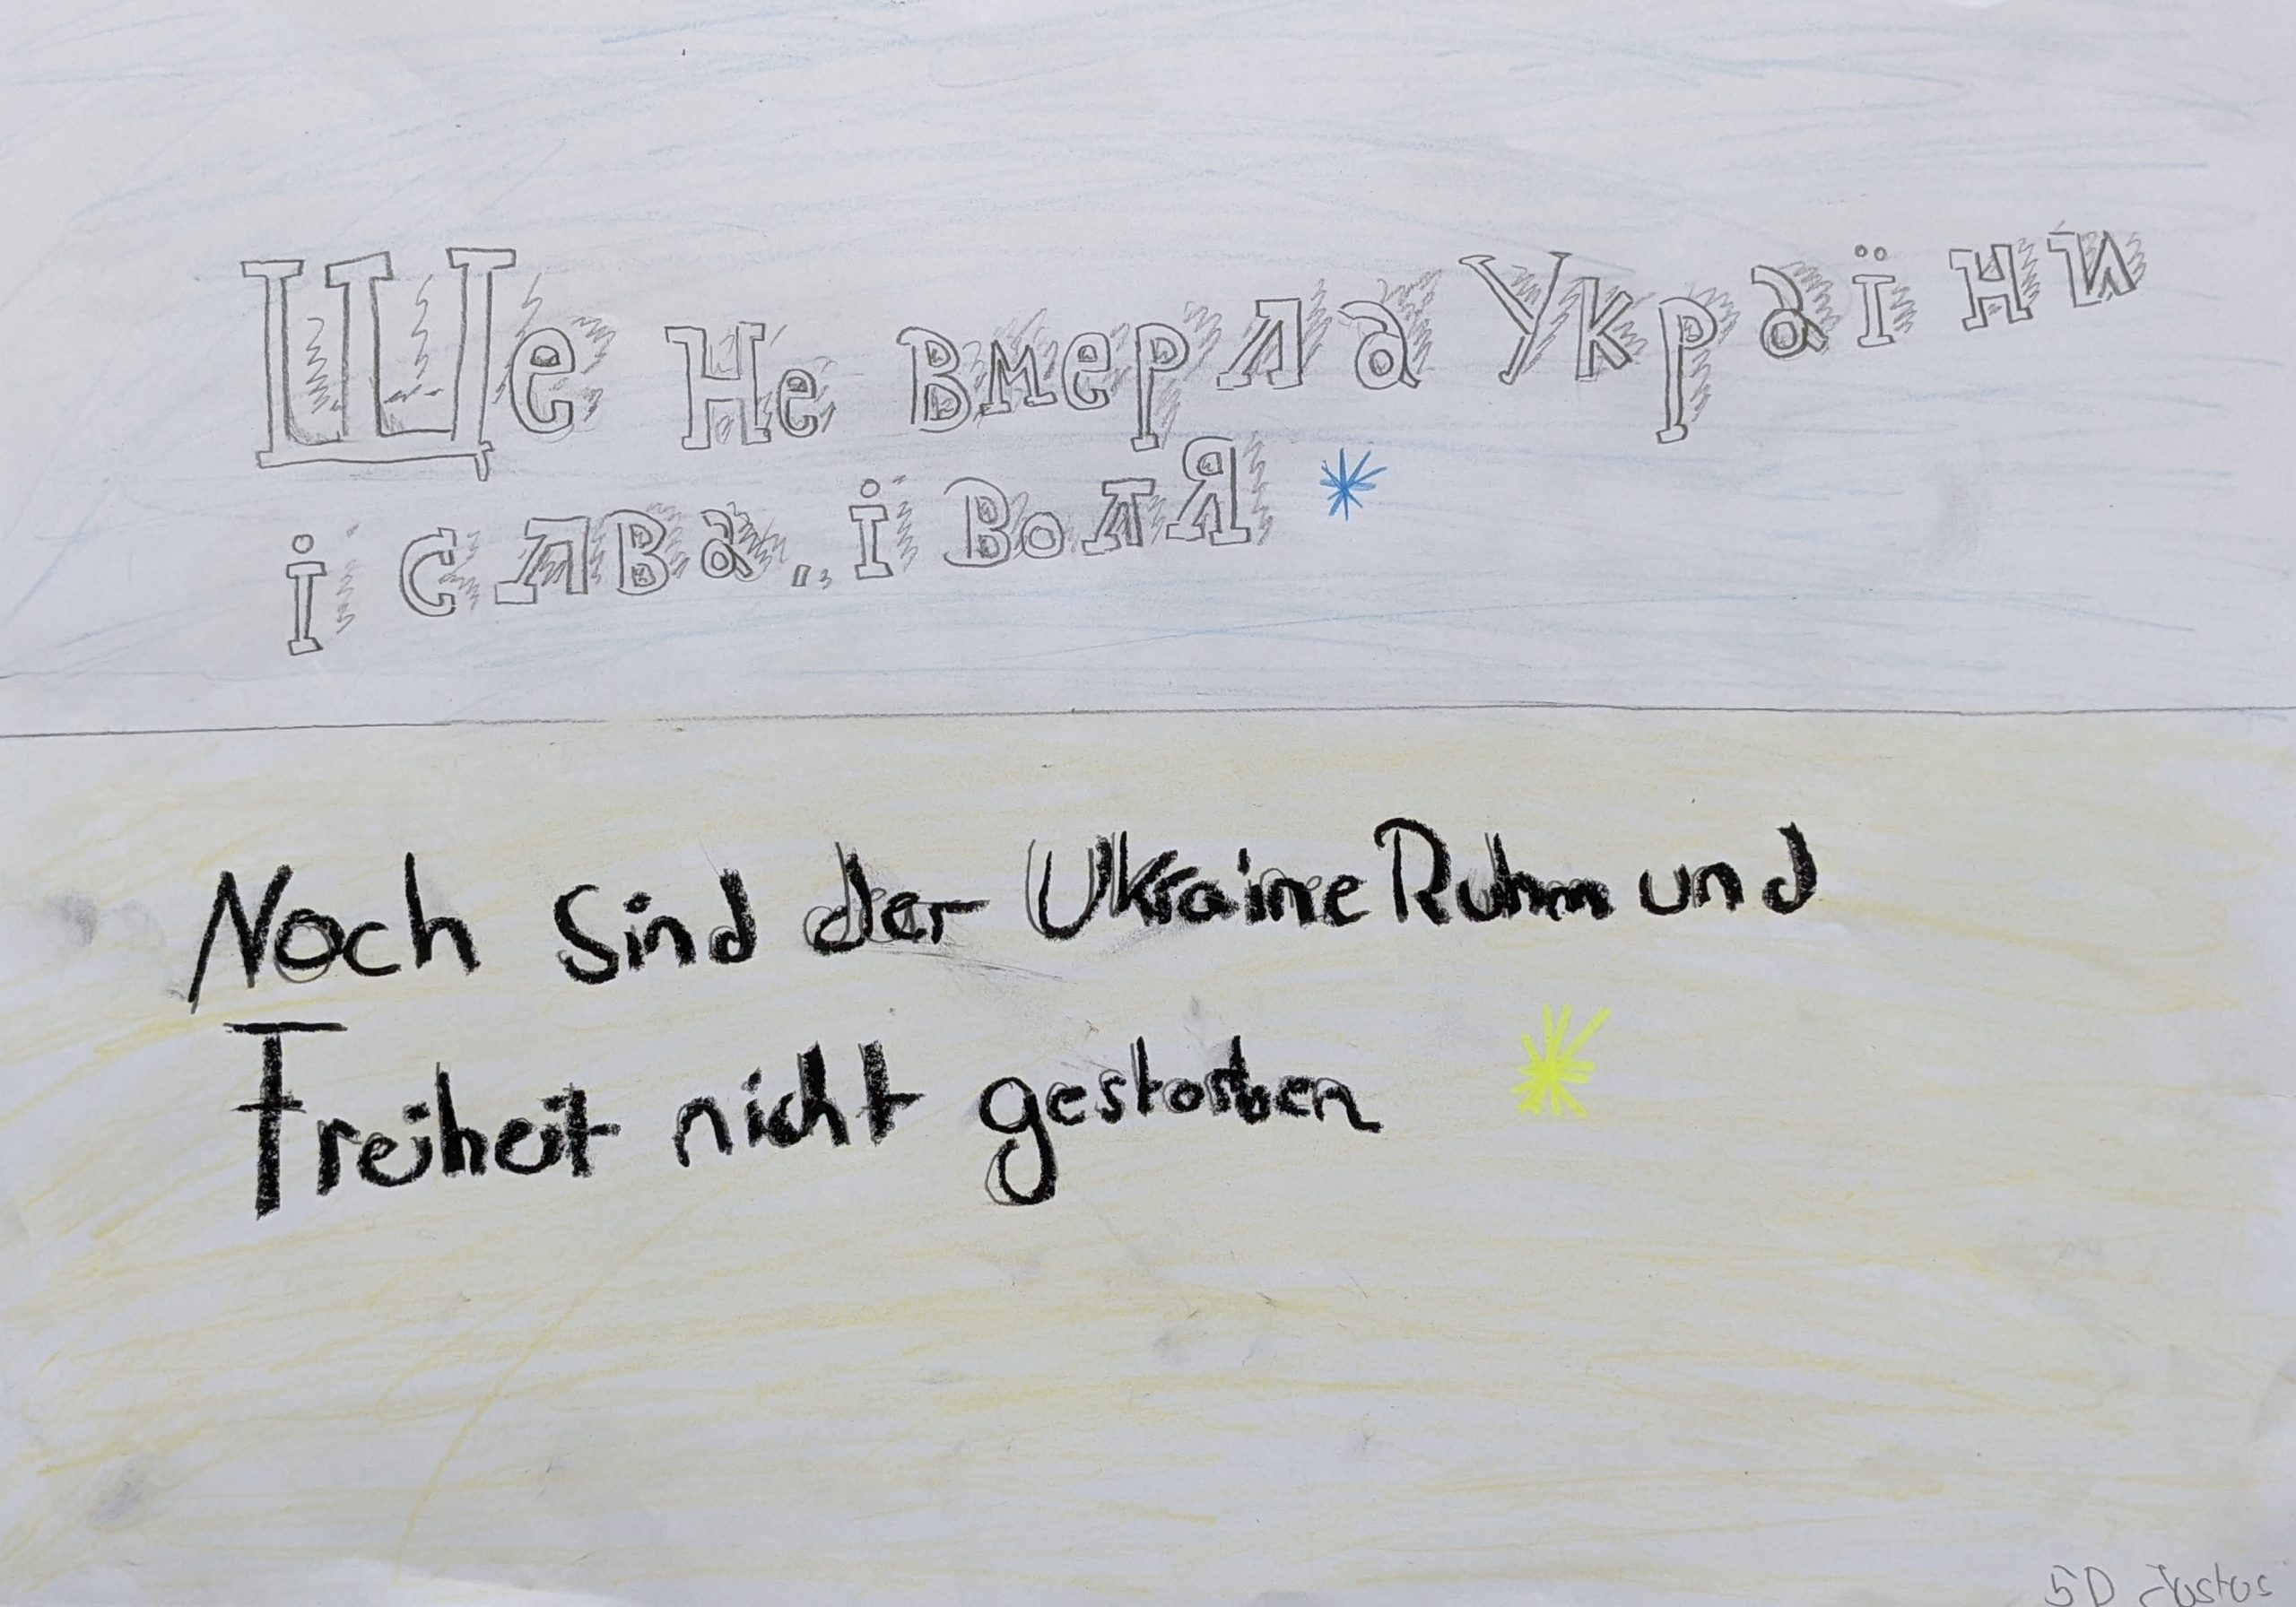 Ще не вмерла України
і слава,, і воля
Noch sind der Ukraine Ruhm und
Freiheit nicht gestorben
5D Justus